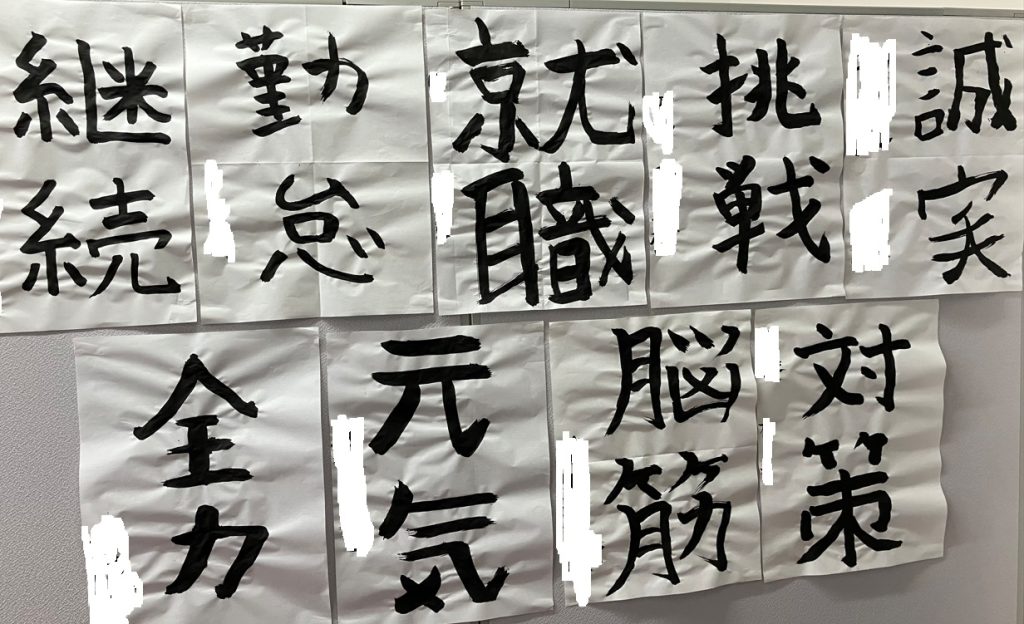 誠実
挑戦
就職
勤怠
継続
対策
脳筋
元気
全力